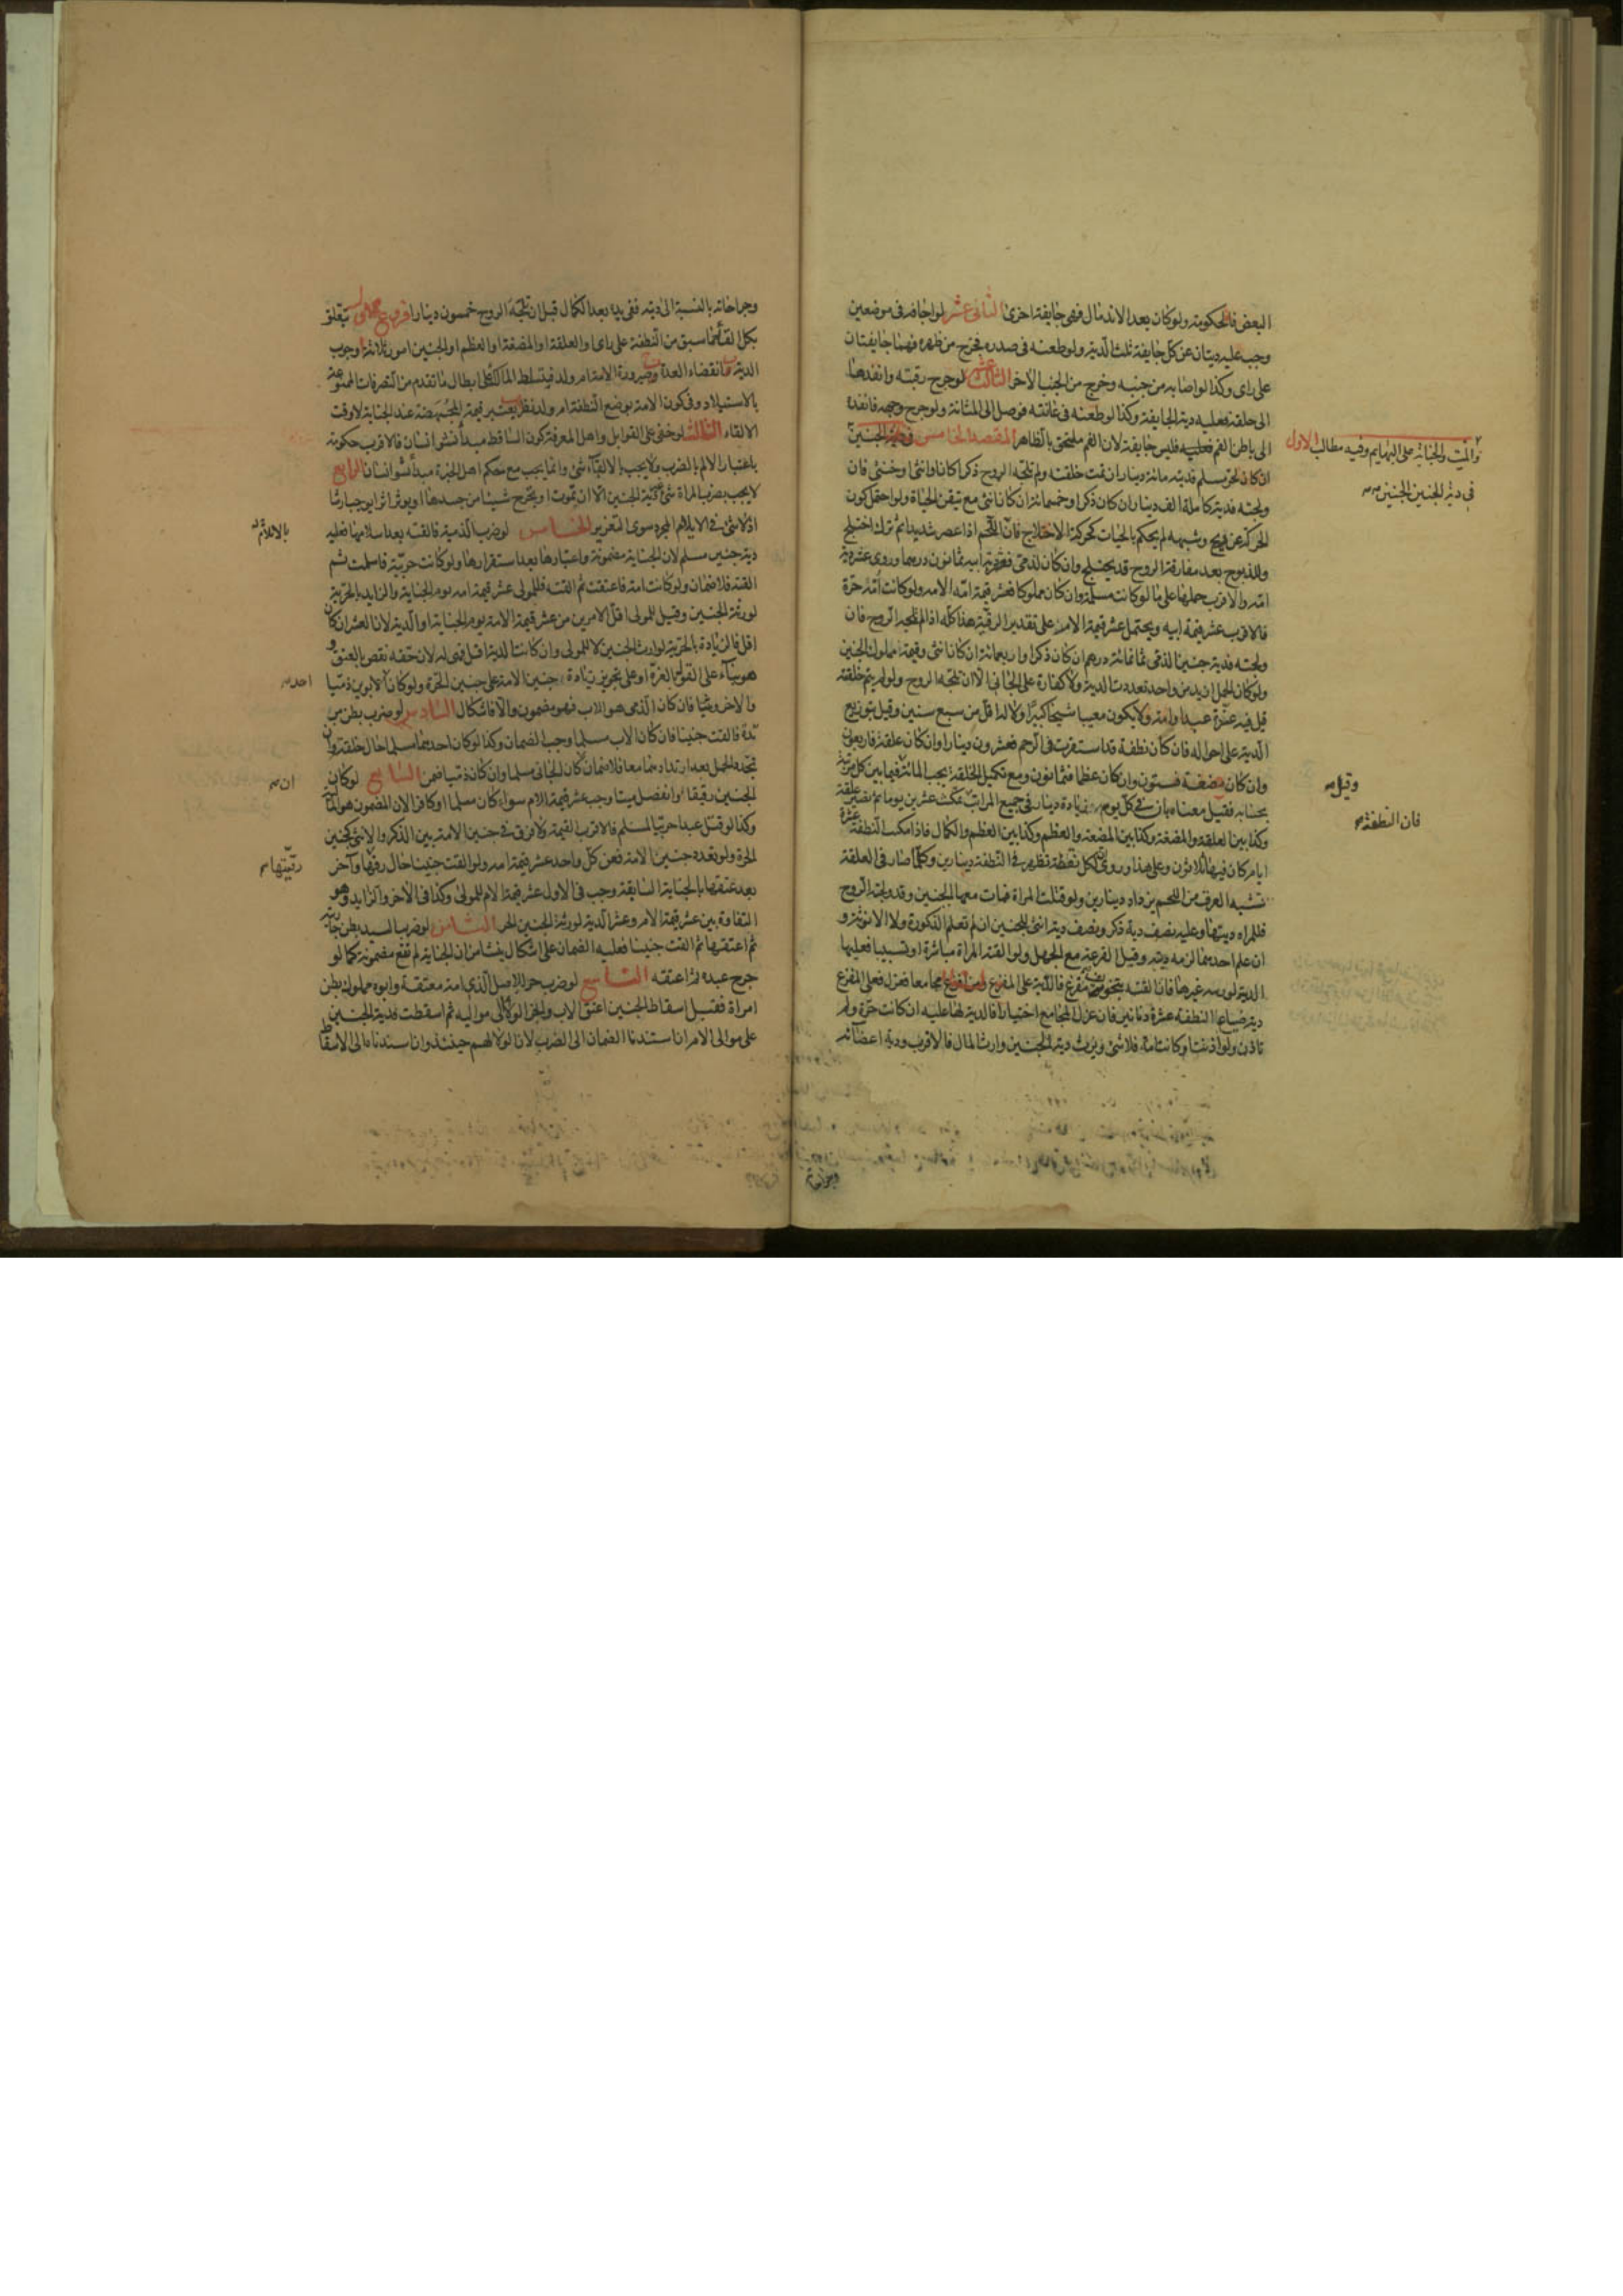 البعض فالحكومة ولو كان بعد الاندمال فهى جايفة اخرى الثانى عشر لو اجافه فى موضعين
وجب عليه ديتان عن كل جايفة ثلث الدية ولو طعنه فى صدره فخرج من ظهره فهما جايفتان
على راى وكذا لو اصابه من جنبه وخرج من الجنب الاخر الثالث عشر لو جرح رقبته وانفذها
الى حلقه فعليه دية الجايفة وكذا لو طعنه فى عانته فوصل الى المثانة ولو جرح وجهه فانفذه
الى باطن الفم فعليه فليس جايفة لان الفم ملتحق بالظاهر المقصد الخامس فى دية الجنين
والميت والجناية على البهايم وفيه مطالب الاول
فى دية الجنين الجنين
ان كان لحر مسلم فديته مائة دينار ان تمت خلقته ولم تلجه الروح ذكرا كان او انثى او خنثى فان
ولجته فدية كاملة الف دينار ان كان ذكرا وخمسمائة ان كان انثى مع تيقن الحياة ولو احتمل كون
الحركة عن ريح وشبهه لم يحكم بالحيات كحركة الاختلاج فان اللحم اذا عصر شديدا ثم ترك اختلج
والمذبوح بعد مفارقة الروح قد يختلج وان كان لذمى فعشر دية ابيه ثمانون درهما وروى عشر دية
امه والاقرب حملها على ما لو كانت مسلمة وان كان مملوكا فعشر قيمة امه الامة ولو كانت امه حرة
فالاقرب عشر قيمة ابيه ويحتمل عشر قيمة الام على تقدير الرقية هذا كله اذا لم تلجه الروح فان
ولجته فدية جنين الذمى ثمانمائة درهم ان كان ذكرا واربعمائة ان كان انثى وقيمة المملوك الجنين
ولو كان الحمل ازيد من واحد تعددت الدية ولا كفارة على الجانى الا ان تلجه الروح ولو لم يتم خلقته
قيل فيه غرة عبد او امة ولا يكون معيبا شيخا كبيرا ولا له اقل من سبع سنين وقيل بتوزيع
الدية على احواله فان كان نطفة قد استقرت فى الرحم فعشرون دينارا وان كان علقة فاربعون
وان كان مضغة فستون وان كان عظما فثمانون ومع تكميل الخلقة يجب المائة وقيل فيما بين كل مرتبة
بحسابه فقيل معناه بان فى كل يوم زيادة دينار فى جميع المراتب فان النطفة تمكث عشرين يوما ثم تصير علقة
وكذا بين العلقة والمضغة وكذا بين المضغة والعظم وكذا بين العظم والكمال فاذا مكثت النطفة عشرة
ايام كان فيها ثلاثون وعلى هذا وروى ان لكل نقطة تظهر فى النطفة دينارين وكلما صار فى العلقة
شبه العرق من اللحم يزداد دينارين ولو قتلت المراة فمات معها الجنين وقد ولجته الروح
فللمراه ديتها وعليه نصف دية ذكر ونصف دية انثى للجنين ان لم تعلم الذكورة ولا الانوثة و
ان علم احدهما لزمه ديته وقيل القرعة مع الجهل ولو القته المراة مباشرة او تسبيبا فعليها
الدية لورثه غيرها فان القته بتخويف مفزع فالدية على المفزع ومن افزع مجامعا فعزل فعلى المفزع
دية ضياع النطفة عشرة دنانير فان عزل المجامع اختيارا فالدية لها عليه ان كانت حرة ولم
تاذن ولو اذنت او كانت امة فلا شئ ويرث دية الجنين وارث المال فالاقرب ودية اعضائه
وجراحاته بالنسبة الى ديته ففى يده بعد الكمال قبل ان تلجه الروح خمسون دينارا فروع يتعلق
بكل القائها سبق من النطفة على راى او العلقة او المضغة او العظم او الجنين امور ثلثة ا وجوب
الدية ب انقضاء العدة ج وصيرورة الامة ام ولد فيتسلط المالك على ابطال ما تقدم من التصرفات الممنوعة
بالاستيلاد وفى كون الامة بوضع النطفة ام ولد نظر ب يعتبر قيمة المجهضة عند الجناية لا وقت
الالقاء الثالث لو خفى على القوابل واهل المعرفة كون الساقط مبدأ نشو انسان فالاقرب حكومة
باعتبار الالم بالضرب ولا يجب بالالقاء شئ وانما يجب مع حكم اهل الخبرة مبدأ نشو انسان الرابع
لا يجب بضرب المراة شئ لدية الجنين الا ان تموت او يخرج شيئا من جسدها او يوثر اثرا يوجب ارشا
اذ لا شئ فى الايلام المجرد سوى التعزير الخامس لو ضرب الذمية فالقته بعد اسلامها فعليه
دية جنين مسلم لان الجناية مضمونة واعتبارها بعد استقرارها ولو كانت حربية فاسلمت ثم
القته فلا ضمان ولو كانت امة فاعتقت ثم القته فللمولى عشر قيمة امه يوم الجناية والزايد بالحرية
لورثة الجنين وقيل للمولى اقل الامرين من عشر قيمة الامة يوم الجناية او الدية لان العشر ان كان
اقل فالزيادة بالحرية لوارث الجنين لا للمولى وان كانت الدية اقل فهى له لان حقه نقص بالعتق و
هو بناء على القول بالغرة او على تجويز زيادة جنين الامة على جنين الحرة ولو كان احد الابوين ذميا
والاخر وثنيا فان كان الذمى هو الاب فهو مضمون والا فاشكال السادس لو ضرب بطن مر
تدة فالقت جنينا فان كان الاب مسلما وجب الضمان وكذا لو كان احدهما مسلما حال خلقته وان
تجدد الحمل بعد ارتدادهما معا فلا ضمان ان كان الجانى مسلما وان كان ذميا ضمن السابع لو كان
الجنين رقيقا وانفصل ميتا وجب عشر قيمة الام سواء كان مسلما او كافرا لان المضمون هو المالية
وكذا لو قتل عبدا حربيا لمسلم فالاقرب القيمة ولا فرق فى جنين الامة بين الذكر والانثى كجنين
الحرة ولو تعدد جنين الامة فعن كل واحد عشر قيمة امه ولو القت جنينا حال رقيتها وآخر
بعد عتقها بالجناية السابقة وجب فى الاول عشر قيمة الام للمولى وكذا فى الآخر والزايد وهو
التفاوت بين عشر قيمة الام وعشر الدية لورثة الجنين الحر الثامن لو ضرب السيد بطن جاريته
ثم اعتقها ثم القت جنينا فعليه الضمان على اشكال ينشا من ان الجناية لم تقع مضمونة كما لو
جرح عبده ثم اعتقه التاسع لو ضرب حر الاصل الذى امه معتقة وابوه مملوك بطن
امراة فقبل اسقاط الجنين اعتق الاب وانجر الولاء الى مواليه ثم اسقطت فدية الجنين
على موالى الام ان اسندنا الضمان الى الضرب لان الولاء لهم حينئذ وان اسندناه الى الاسقاط